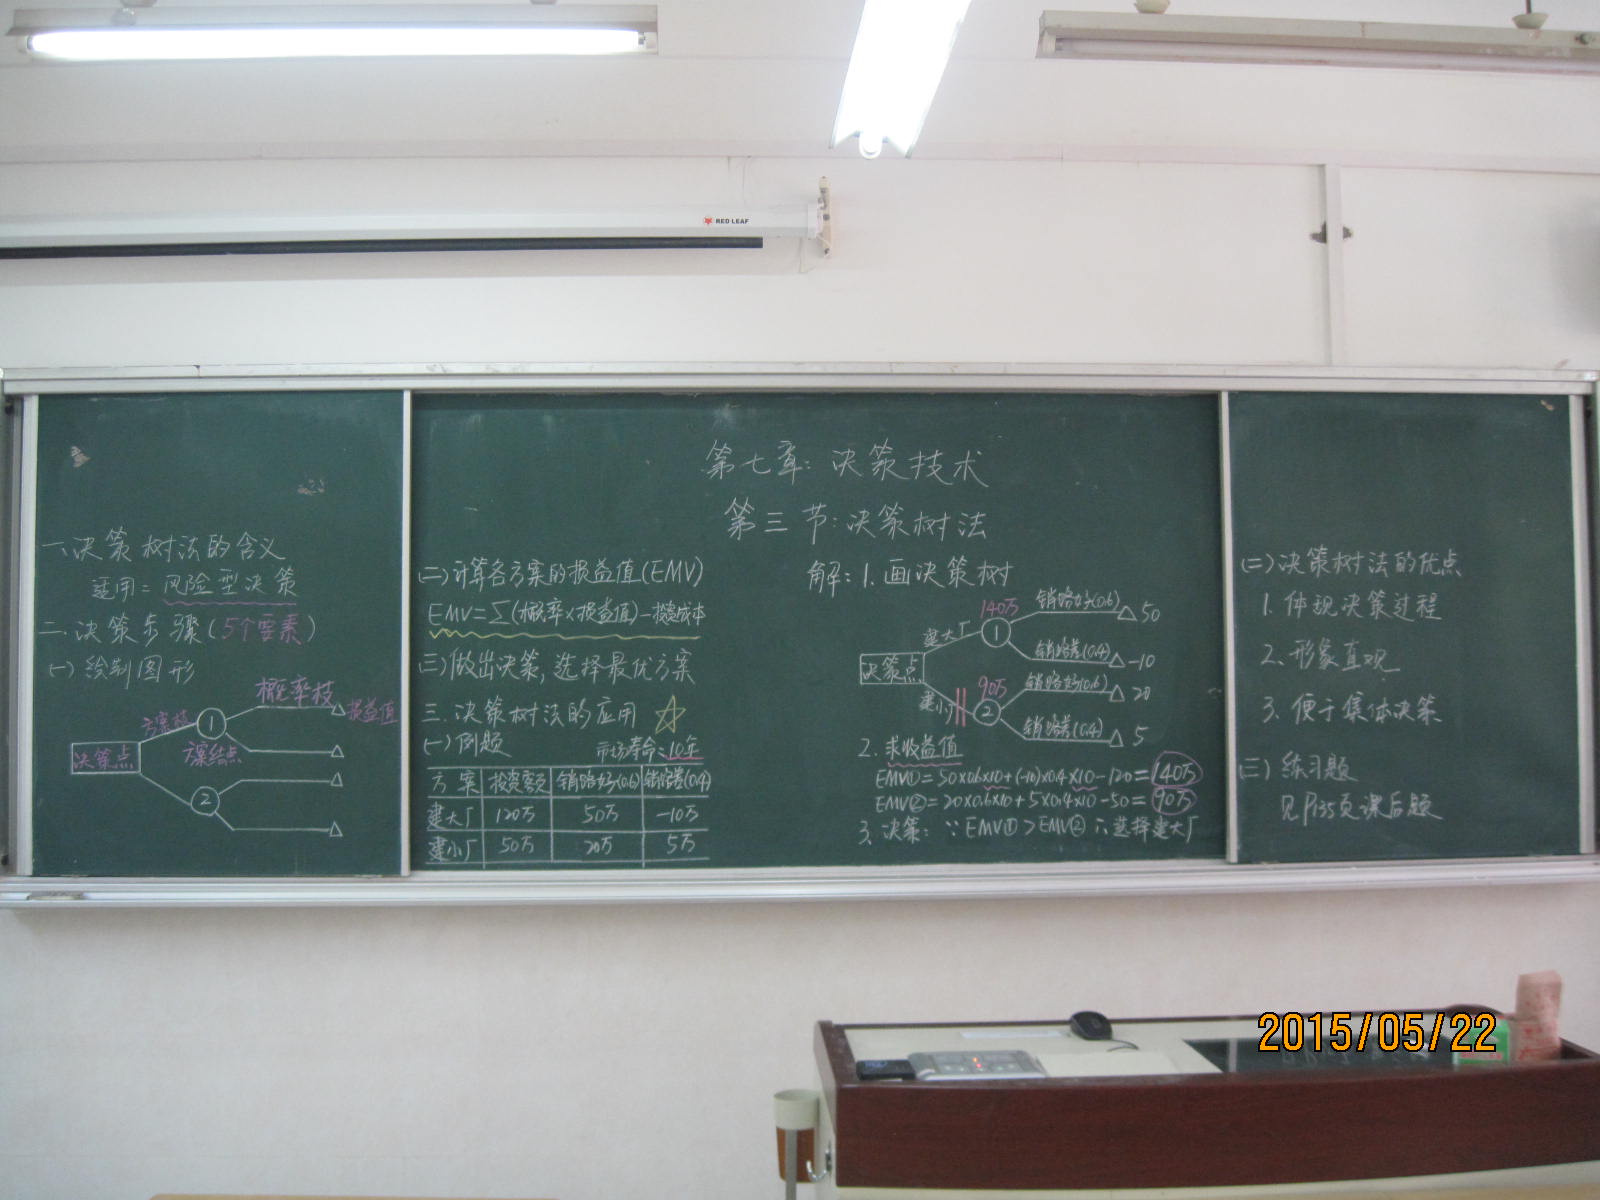 RED LEAF
第七章:决策技术
第三节:决策树法
一、决策树法的含义
适用:风险型决策
二、决策步骤(5个要素)
(一)绘制图形
概率枝
损益值
方案枝
1
方案结点
决策点
2
(二)计算各方案的损益值(EMV)
EMV=∑(概率×损益值)-投资成本
(三)做出决策,选择最优方案
三、决策树法的应用
(一)例题 市场寿命:10年
方案 投资额 销路好(0.6) 销路差(0.4)
建大厂 120万 50万 -10万
建小厂 50万 20万 5万
解:1.画决策树
140万 销路好(0.6) 50
建大厂 1
销路差(0.4) -10
决策点
90万 销路好(0.6) 20
建小厂 2
销路差(0.4) 5
2.求收益值
EMV①=50×0.6×10+(-10)×0.4×10-120=140万
EMV②=20×0.6×10+5×0.4×10-50=90万
3、决策:∵EMV①>EMV②∴选择建大厂
(二)决策树法的优点
1.体现决策过程
2.形象直观
3.便于集体决策
(三)练习题
见P135页课后题
2015/05/22